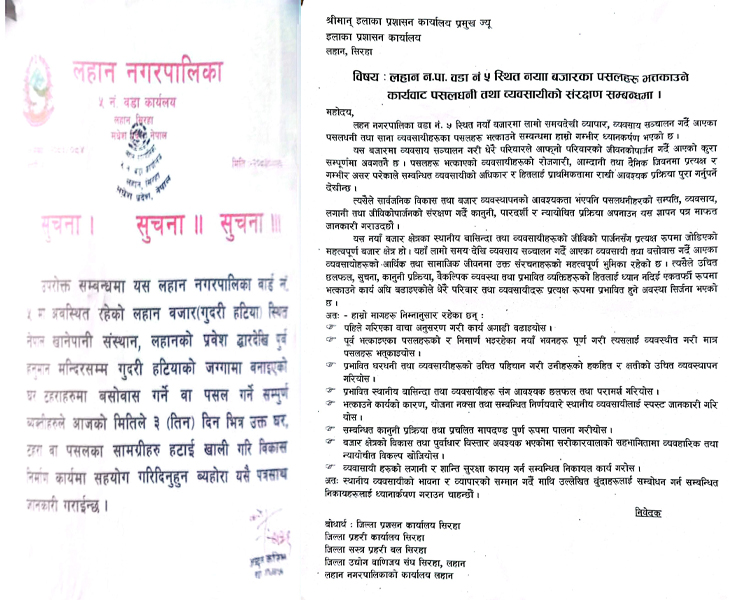 लहान नगरपालिका
५ नं. वडा कार्यालय
लहान सिरहा
मधेश प्रदेश, नेपाल
मिति
सूचना । सूचना ॥ सूचना ॥।
उपरोक्त सम्बन्धमा यस लहान नगरपालिका वार्ड नं.
५ मा अवस्थित रहेको लहान बजार(गुदरी हटिया) स्थित
नेपाल खानेपानी संस्थान, लहानको प्रवेश द्वारदेखि पूर्व
हनुमान मन्दिरसम्म गुदरी हटियाको जग्गामा बनाइएको
घर टहराहरुमा बसोवास गर्ने वा पसल गर्ने सम्पूर्ण
व्यक्तीहरुले आजको मितिले ३ (तिन) दिन भित्र उक्त घर,
टहरा वा पसलका सामग्रीहरु हटाई खाली गरि विकास
निर्माण कार्यमा सहयोग गरिदिनुहुन व्यहोरा यसै पत्रसाथ
जानकारी गराईन्छ ।
श्रीमान् इलाका प्रशासन कार्यालय प्रमुख ज्यू
इलाका प्रशासन कार्यालय
लहान, सिरहा
विषय : लहान न.पा. वडा नं ५ स्थित नयाा बजारका पसलहरु भत्काउने
कार्यवाट पसलधनी तथा व्यवसायीको संरक्षण सम्बन्धमा ।
महोदय,
लहन नगरपालिका वडा नं. ५ स्थित नयाँ बजारमा लामो समयदेखी व्यापार, व्यवसाय सञ्चालन गर्दै आएका
पसलधनी तथा साना व्यवसायीहरुको पसलहरु भत्काउने सम्वन्धमा हाम्रो गम्भीर ध्यानकर्षण भएको छ ।
यस बजारमा व्यवसाय सञ्चालन गरी धेरै परिवारले आफ्नो परिवारको जीवनकोपार्जन गर्दै आएको कुरा
सम्पूर्णमा अवगतनै छ । पसलहरु भत्काएको व्यवसायीहरुको रोजगारी, आम्दानी तथा दैनिक जिवनमा प्रत्यक्ष र
गम्भीर असर परेकाले सम्वन्धित व्यवसायीको अधिकार र हितलाई प्राथमिकतामा राखी आवश्यक प्रक्रिया पुरा गर्नुपर्ने
देखीन्छ ।
त्यसैले सार्वजनिक विकास तथा बजार व्यवस्थापनको आवश्यकता भएपनि पसलधनीहरुको सम्पति, व्यवसाय,
लगानी तथा जीविकोपार्जनको संरक्षण गर्दै कानुनी, पारदर्शी र न्यायोचित प्रक्रिया अपनाउन यस ज्ञापन पत्र मार्फत
जानकारी गराउदछौ ।
यस नयाँ बजार क्षेत्रका स्थानीय बासिन्दा तथा व्यवसायीहरुको जीविको पार्जनसँग प्रत्यक्ष रुपमा जोडिएको
महत्वपूर्ण बजार क्षेत्र हो। यहाँ लामो समय देखि व्यवसाय सञ्चालन गर्दै आएका व्यवसायी तथा बसोवास गर्दै आएका
व्यवसायीहरुको आर्थिक तथा सामाजिक जीवनमा उक्त संरचनाहरुको महत्वपूर्ण भुमिका रहेको छ । त्यसैले उचित
छलफल, सुचना, कानुनी प्रक्रिया, वैकल्पिक व्यवस्था तथा प्रभावित व्यक्तिहरुको हितलाई ध्यान नदिई एकतर्फी रूपमा
भत्काउने कार्य अघि बढाइएकोले धेरै परिवार तथा व्यवसायीहरु प्रत्यक्ष रूपमा प्रभावित हुने अवस्था सिर्जना भएको
छ ।
अतः - हाम्रो मागहरु निम्नानुसार रहेका छन् :
☞ पहिले गरिएका वाचा अनुसरण गरी कार्य अगाडी वढाइयोस ।
☞ पूर्व भत्काइएका पसलहरुको र निमार्ण भइरहेका नयाँ भवनहरु पूर्ण गरी त्यसलाई व्यवस्थीत गरी मात्र
पसलहरु भत्काइयोस ।
☞ प्रभावित घरधनी तथा व्यवसायीहरुको उचित पहिचान गरी उनीहरुको हकहित र क्षतीको उचित व्यवस्थापन
गरियोस ।
☞ प्रभावित स्थानीय बासिन्दा तथा व्यवसायीहरु संग आवश्यक छलफल तथा परामर्श गरियोस ।
☞ भत्काउने कार्यको कारण, योजना नक्सा तथा सम्बन्धित निर्णयवारे स्थानीय व्यवसायीलाई स्पस्ट जानकारी गरि
योस ।
☞ सम्वन्धित कानुनी प्रक्रिया तथा प्रचलित मापदण्ड पुर्ण रूपमा पालना गरीयोस ।
☞ बजार क्षेत्रको विकास तथा पुर्वाधार विस्तार अवश्यक भएकोमा सरोकारवालाको सहभागितामा व्यवहारिक तथा
न्यायोचीत विकल्प खोजियोस ।
☞ व्यवसायी हरुको लगानी र शान्ति सुरक्षा कायम गर्न सम्वन्धित निकायल कार्य गरोस ।
अतः स्थानीय व्यवसायीको भावना र व्यापारको सम्मान गर्दै माथि उल्लेखित वुंदाहरुलाई सम्बोधन गर्न सम्बन्धित
निकायहरुलाई ध्यानार्कषण गराउन चाहन्छौं ।
निवेदक
बोधार्थ : जिल्ला प्रशसन कार्यालय सिरहा
जिल्ला प्रहरी कार्यालय सिरहा
जिल्ला सस्त्र प्रहरी बल सिरहा
जिल्ला उद्योग वाणिजय संघ सिरहा, लहान
लहान नगरपालिकाको कार्यालय लहान